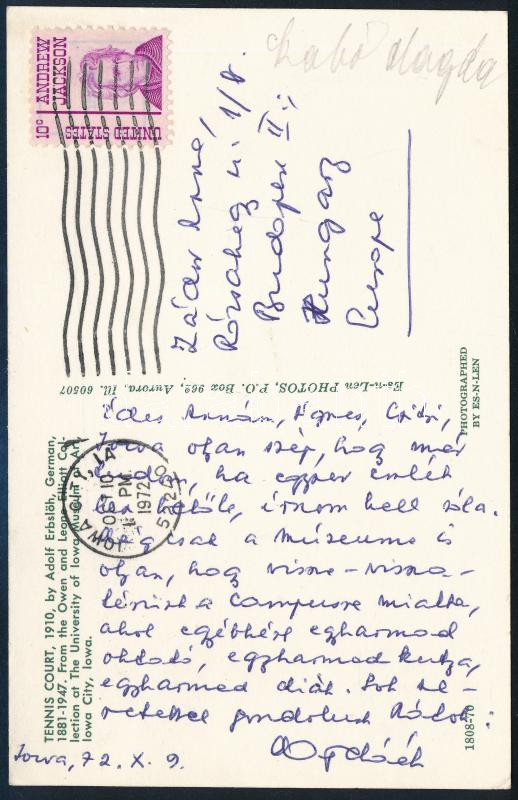 Szabó Magda
ANDREW
JACKSON
10c
UNITED STATES
Zádor Anná,
Rózsahegy u. 1/b.
Budapest II.
Hungary
Europe
IOWA CITY, IA
OCT 10
PM
1972
522 40
Es-n-Len PHOTOS, P.O. Box 962, Aurora, Ill. 60507
PHOTOGRAPHED
BY ES-N-LEN
TENNIS COURT, 1910, by Adolf Erbslöh, German,
1881-1947. From the Owen and Leone Elliott Col-
lection at The University of Iowa Museum of Art,
Iowa City, Iowa.
1808-70
Édes Annám, Ágnes,
Iowa olyan szép, hogy már
ha egyszer emlék
lesz belőle, írnom kell róla.
Még csak a múzeuma is
olyan, hogy vissza-vissza-
térünk a campusra miatta,
ahol egyébként egyharmad
oktató, egyharmad kutya,
egyharmad diák. Sok sze-
retettel gondolunk Rátok:
Magdáék
Iowa, 72. X. 9.